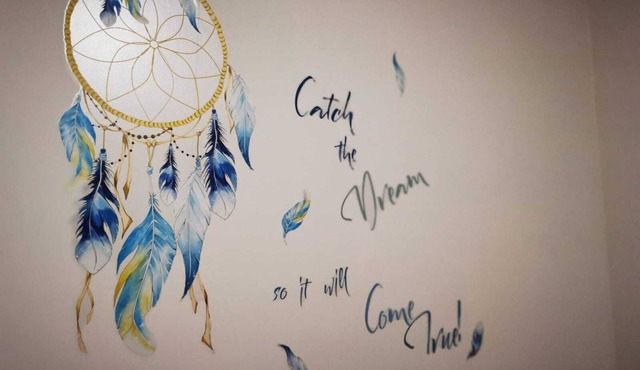 Catch
the
Dream
so it will
Come
True!